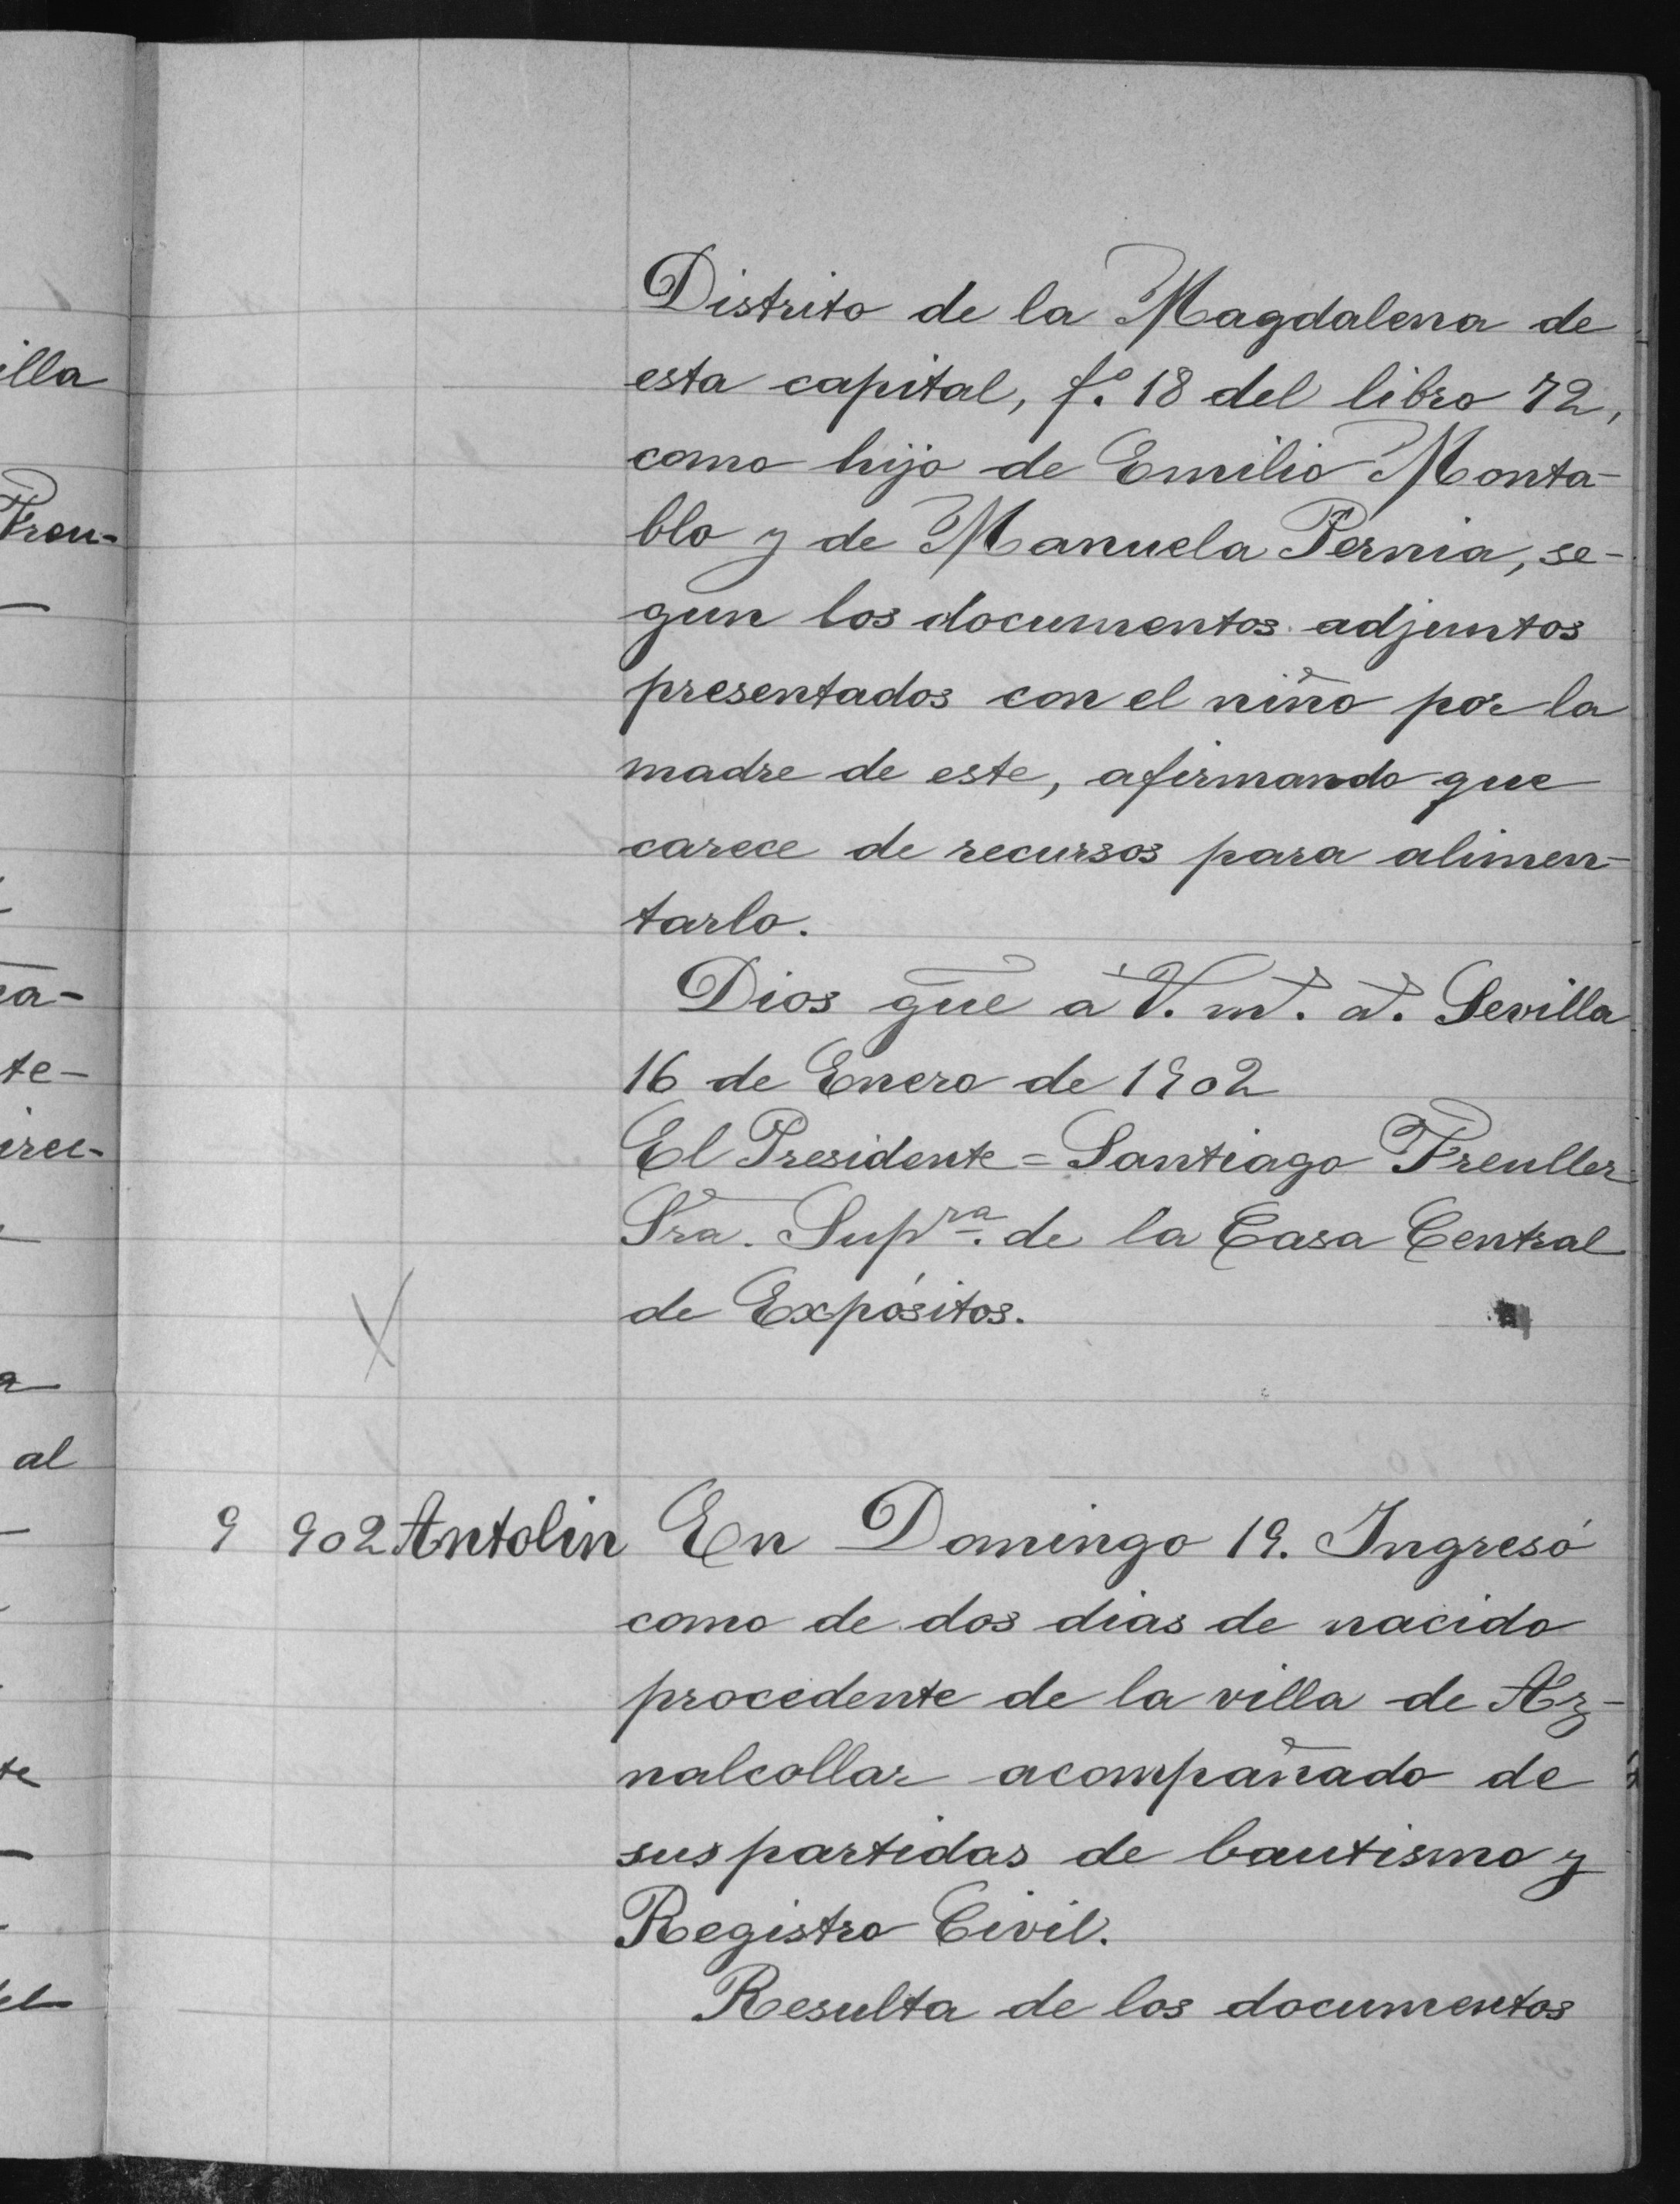 Distrito de la Magdalena de
esta capital, fº. 18 del libro 72,
como hijo de Emilio Monta-
blo y de Manuela Pernia, se-
gun los documentos adjuntos
presentados con el niño por la
madre de este, afirmando que
carece de recursos para alimen-
tarlo.
Dios gue a V. m. a. Sevilla
16 de Enero de 1902
El Presidente = Santiago Freuller
Sra. Supra. de la Casa Central
de Expósitos.
9 902 Antolin En Domingo 19. Ingresó
como de dos dias de nacido
procedente de la villa de Az-
nalcollar acompañado de
sus partidas de bautismo y
Registro Civil.
Resulta de los documentos
illa
Freu-
te-
al